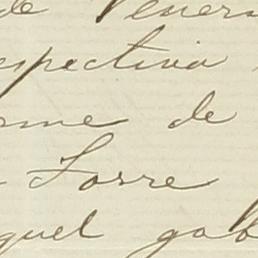 de Veneri
espectiva
rme de
Torre
guel gab